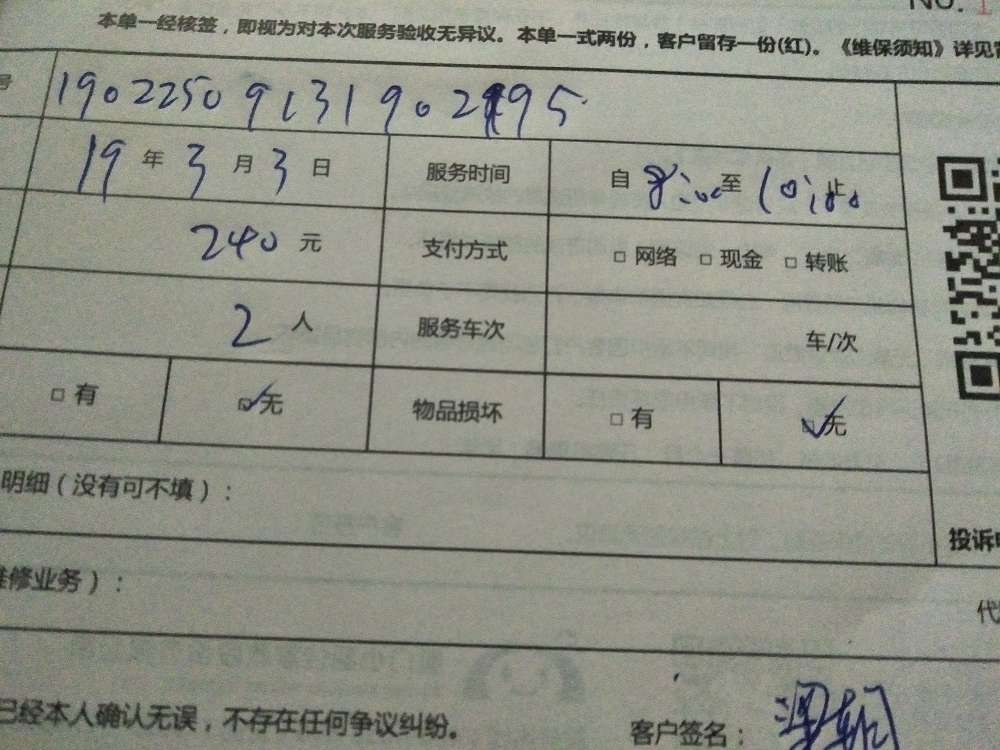 NO. 1
本单一经核签，即视为对本次服务验收无异议。本单一式两份，客户留存一份(红)。《维保须知》详见
号 1902250913190295
19 年 3 月 3 日 服务时间 自 8:00 至 10:00 止
240 元 支付方式 □ 网络 □ 现金 □ 转账
2 人 服务车次 车/次
□ 有 ☑ 无 物品损坏 □ 有 ☑ 无
明细（没有可不填）：
投诉
维修业务）：
代
已经本人确认无误，不存在任何争议纠纷。 客户签名：